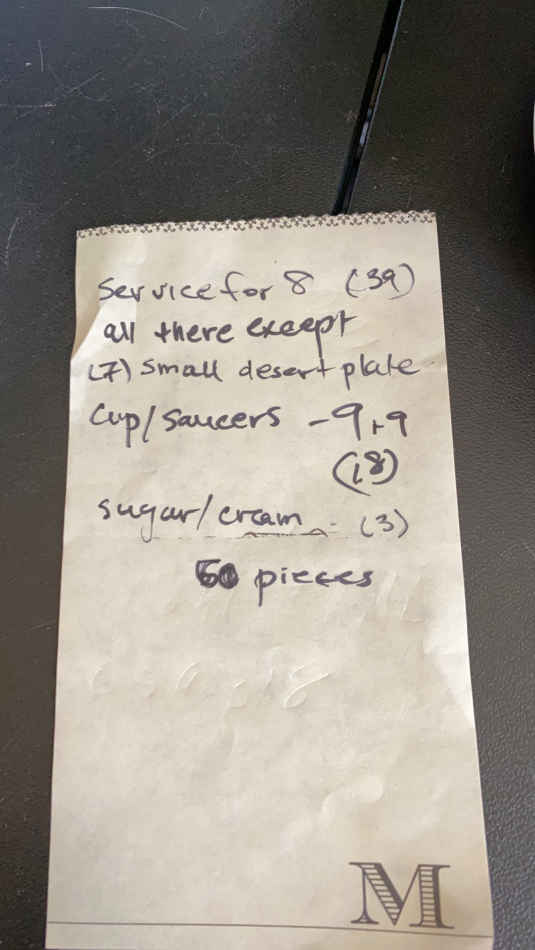 Service for 8 (39)
all there except
(7) small desert plate
Cup/saucers - 9+9
(18)
sugar/cream - (3)
60 pieces
M